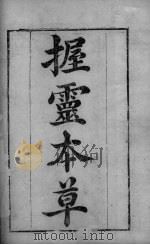 握靈本草